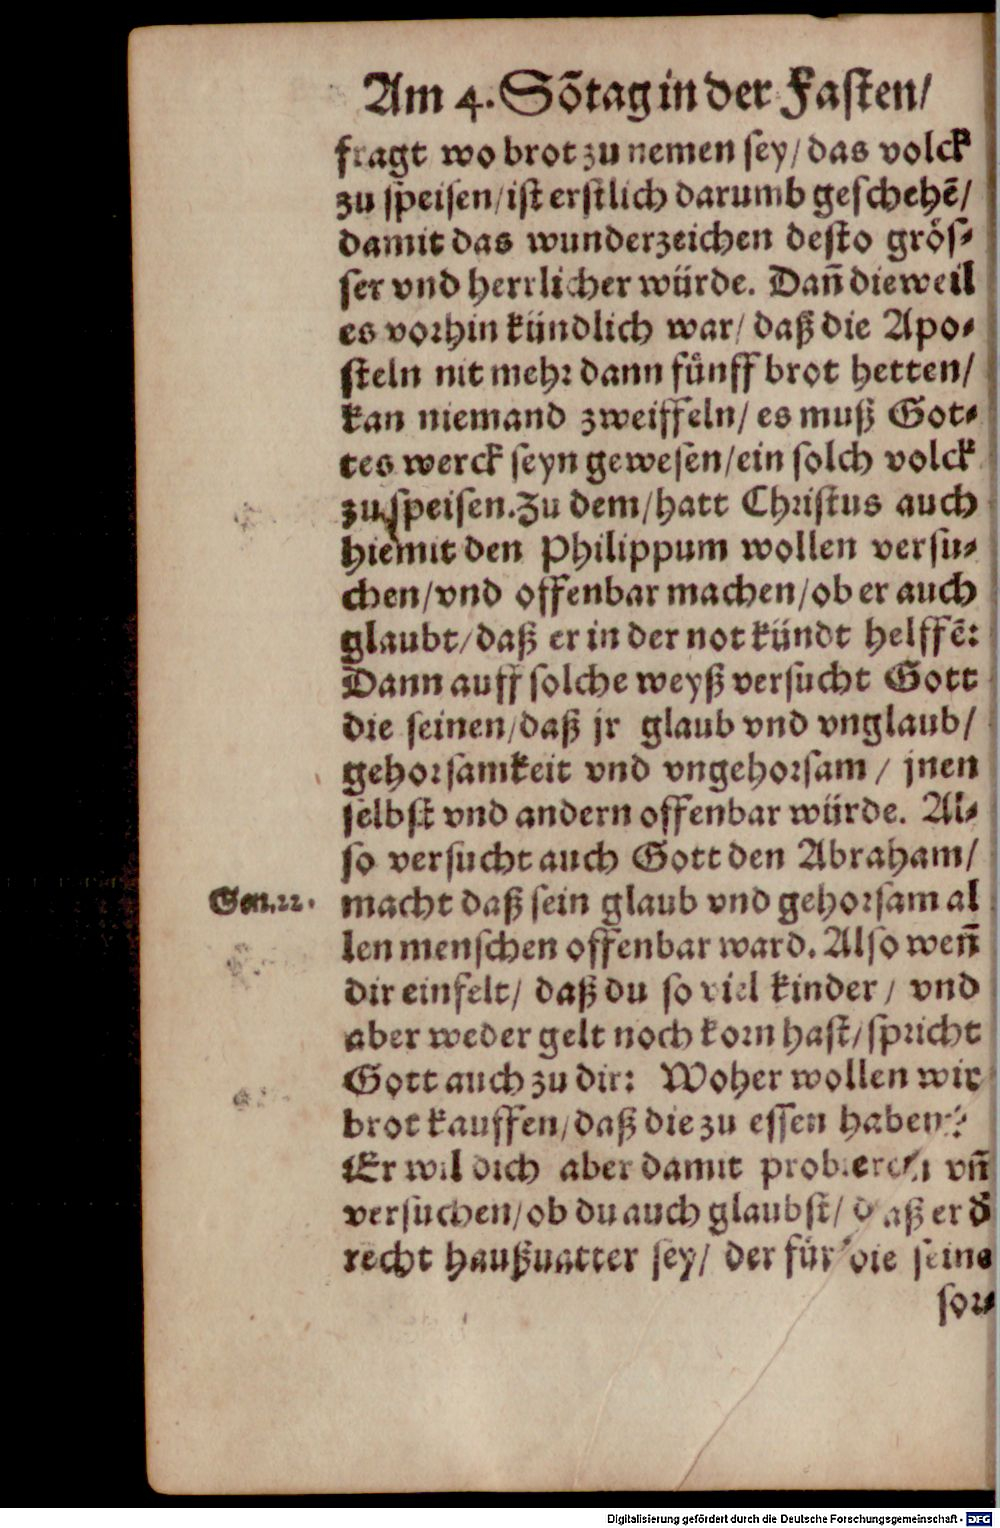 Am 4. Sõtag in der Fasten/
fragt wo brot zu nemen sey/ das volck
zu speisen/ ist erstlich darumb geschehẽ/
damit das wunderzeichen desto grös-
ser vnd herrlicher würde. Dañ dieweil
es vorhin kündlich war/ daß die Apo-
steln nit mehr dann fünff brot hetten/
kan niemand zweiffeln/ es muß Got-
tes werck seyn gewesen/ ein solch volck
zu speisen. Zu dem/ hatt Christus auch
hiemit den Philippum wollen versu-
chen/ vnd offenbar machen/ ob er auch
glaubt/ daß er in der not kündt helffẽ:
Dann auff solche weyß versucht Gott
die seinen/ daß jr glaub vnd vnglaub/
gehorsamkeit vnd vngehorsam / jnen
selbst vnd andern offenbar würde. Al-
so versucht auch Gott den Abraham/
Gen. 22. macht daß sein glaub vnd gehorsam al
len menschen offenbar ward. Also weñ
dir einfelt/ daß du so viel kinder / vnd
aber weder gelt noch korn hast/ spricht
Gott auch zu dir: Woher wollen wir
brot kauffen/ daß die zu essen haben?
Er wil dich aber damit probieren vñ
versuchen/ ob du auch glaubst/ daß er d̃
recht haußuatter sey/ der für die seine
sor-
Digitalisierung gefördert durch die Deutsche Forschungsgemeinschaft - DFG